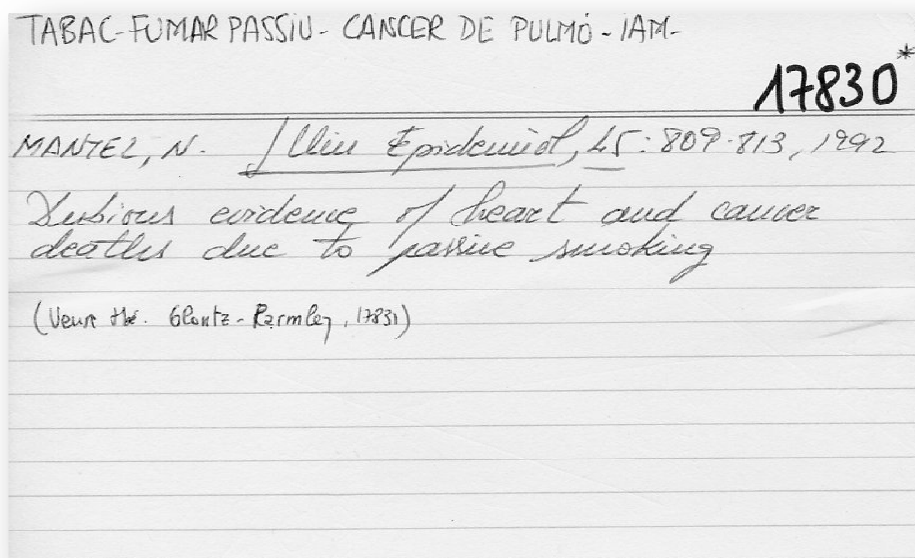 TABAC-FUMAR PASSIU- CANCER DE PULMÓ-IAM-
17830*
MANTEL, N. J Clin Epidemiol, 45: 809-813, 1992
Dubious evidence of heart and cancer
deaths due to passive smoking
(Veure tbé. Glantz-Parmley, 17831)